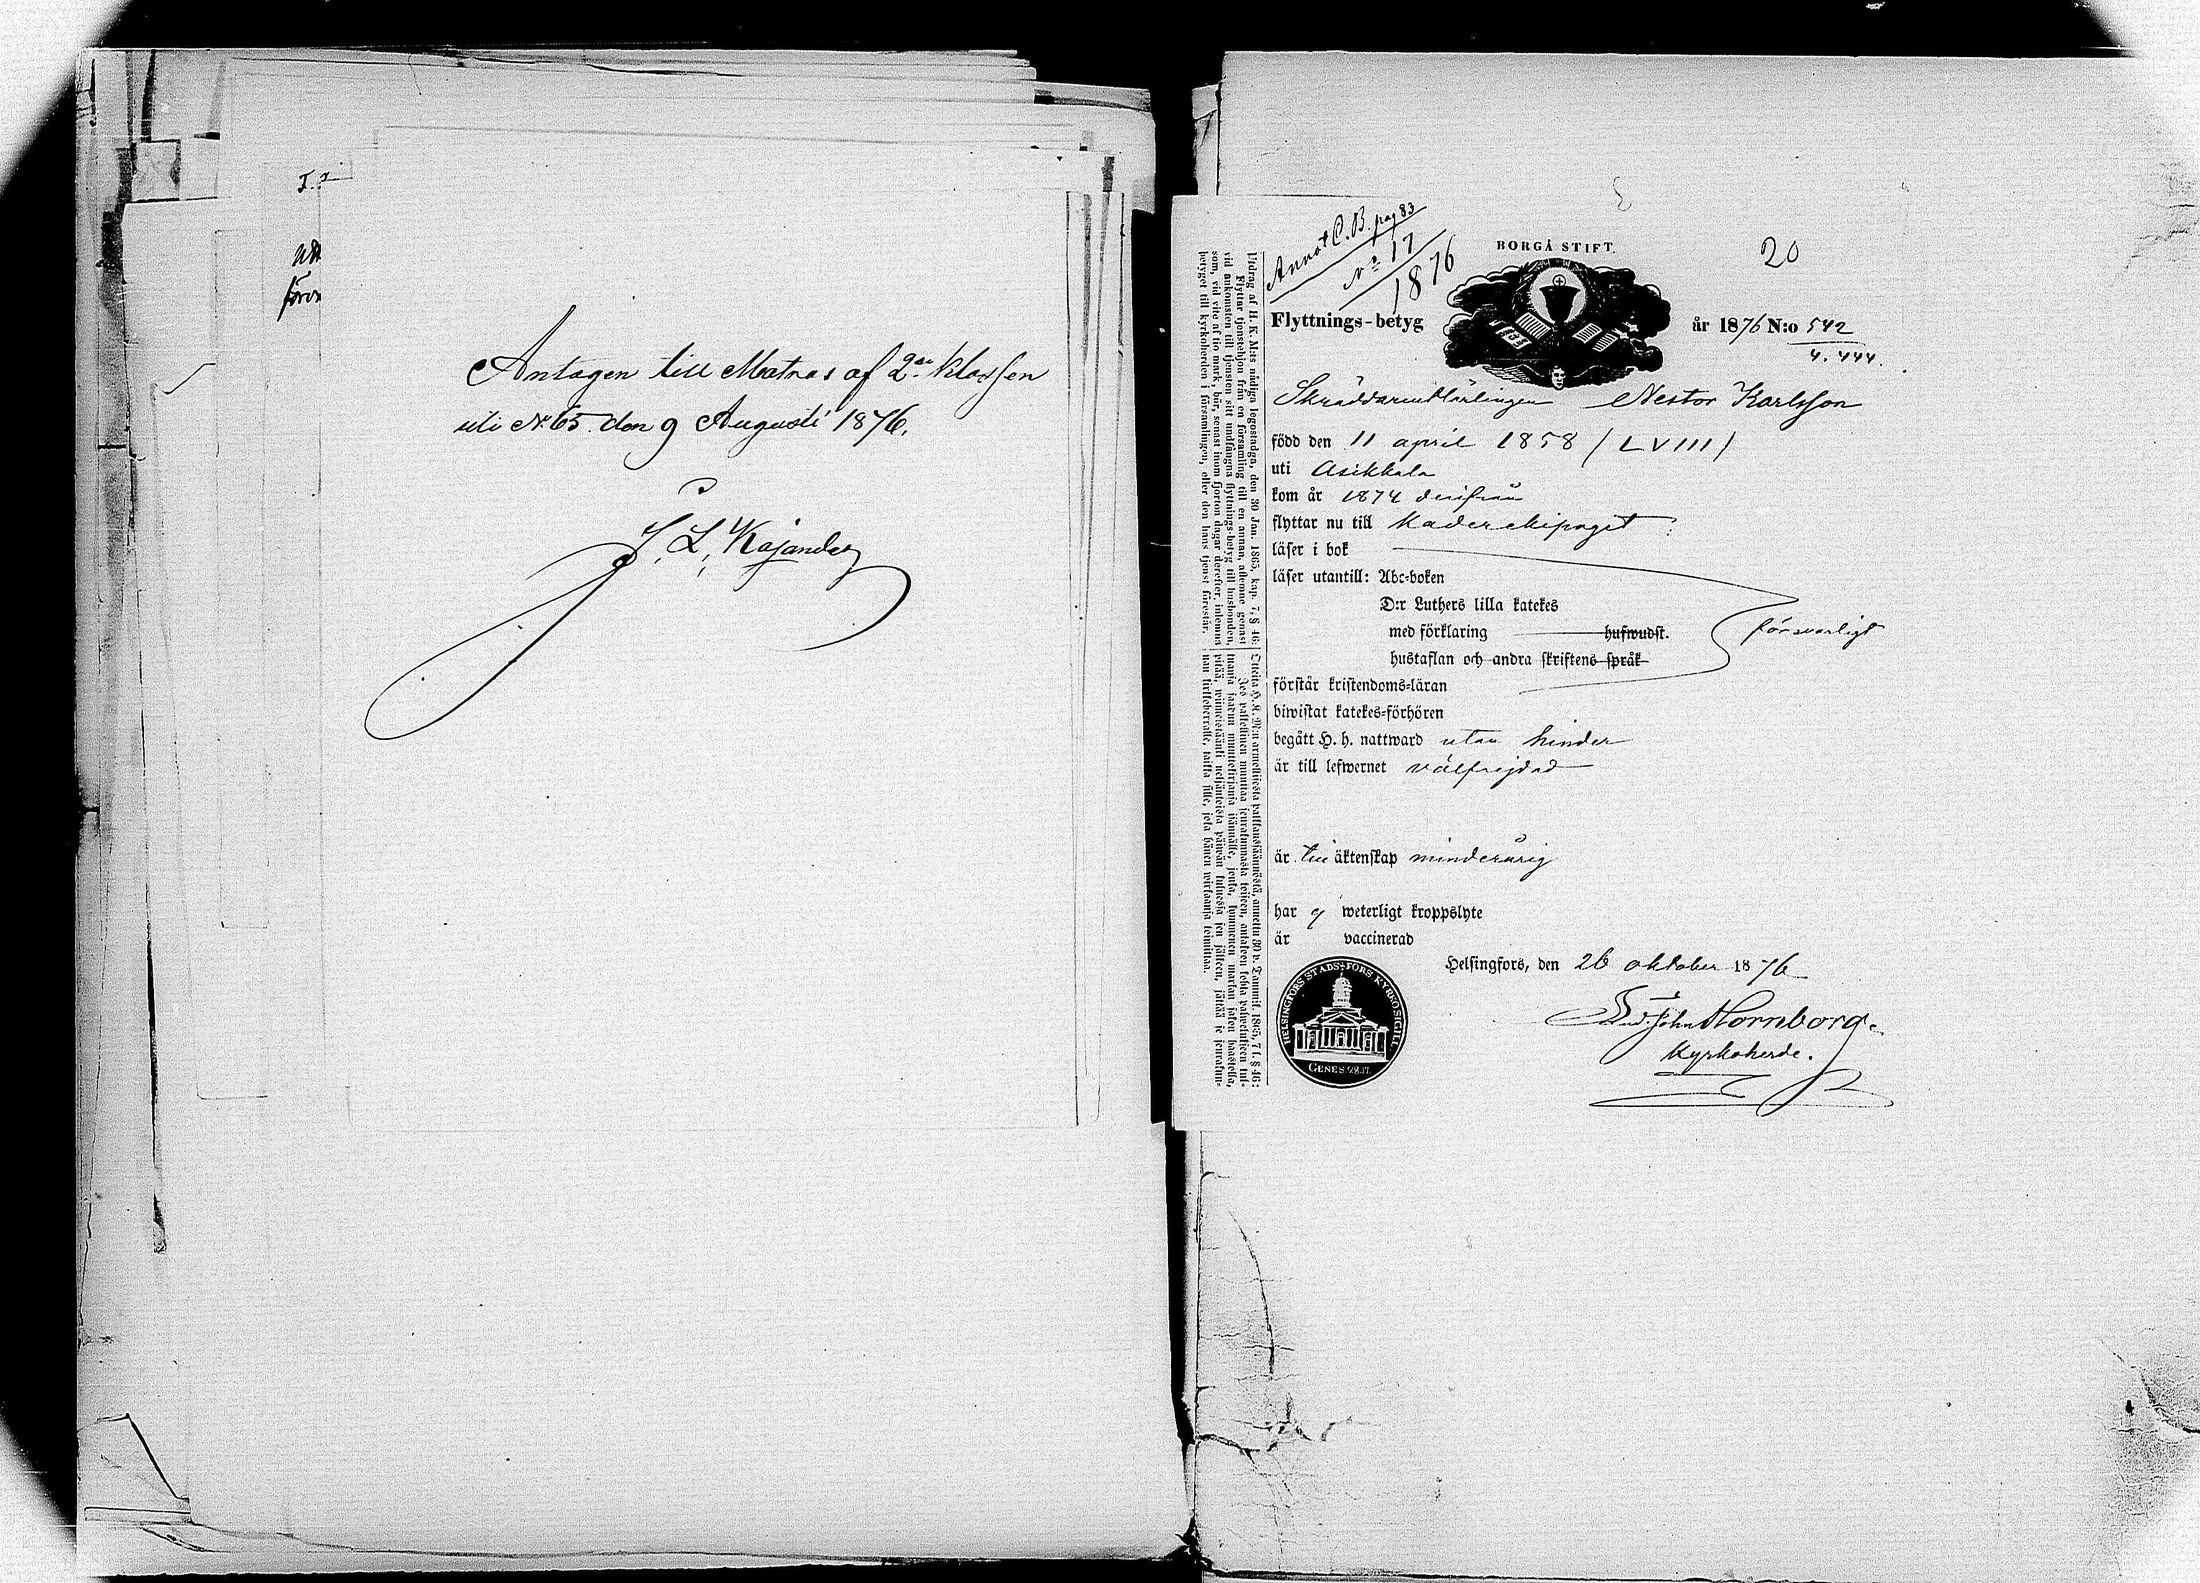 Antagen till Matros af 2:dra klassen
uti No 65. den 9 Augusti 1876.
J. L. Kajander
Annot C. B. pag 83
No 17
1876
BORGÅ STIFT.
20
Flyttnings-betyg
år 1876 N:o 542
4.444.
Skräddarelärlingen Nestor Karlsson
född den 11 april 1858 (LVIII)
uti Asikkala
kom år 1874 derifrån
flyttar nu till Kaderekipaget
läser i bok
läser utantill: Abc-boken
D:r Luthers lilla katekes
med förklaring hufwudst.
hustaflan och andra skriftens språk
försvarligt
förstår kristendoms-läran
biwistat katekes-förhören
begått H. h. nattward utan hinder
är till lefwernet välfrejdad
är till äktenskap minderårig
har ej weterligt kroppslyte
är vaccinerad
Helsingfors, den 26 oktober 1876
John Hornborg.
Kyrkoherde.
HELSINGFORS STADS-FÖRS KYRKOSIGILL
GENES. 28.17.
Utdrag af H. K. M:ts nådiga legostadga, den 30 Jan. 1865, kap. 7, § 46:
Flyttar tjenstehjon från en församling till en annan, aflemne genast
vid ankomsten till tjensten sitt undfångna flyttnings-betyg till husbonden,
som, vid vite af tio mark, bör, senast inom fjorton dagar derefter, inlemna
betyget till kyrkoherden i församlingen, eller den hans tjenst förestår.